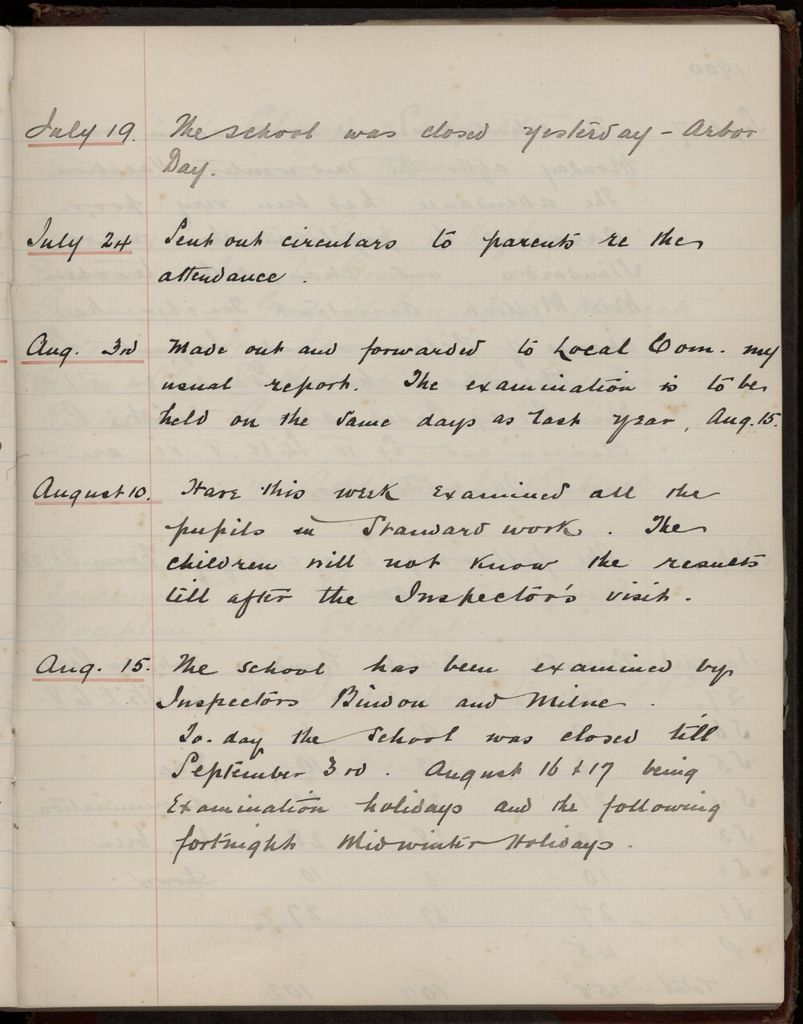 July 19. The school was closed yesterday – Arbor
Day.
July 24 Sent out circulars to parents re the
attendance.
Aug. 3rd Made out and forwarded to Local Com. my
usual report. The examination is to be
held on the same days as last year, Aug. 15.
August 10. Have this week examined all the
pupils in Standard work. The
children will not know the results
till after the Inspector's visit.
Aug. 15. The school has been examined by
Inspectors Bindon and Milne.
To-day the school was closed till
September 3rd. August 16 & 17 being
Examination holidays and the following
fortnight Midwinter Holidays.